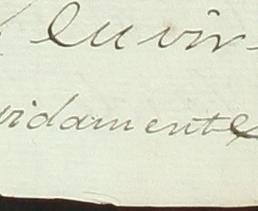 Cuvir
vidamente